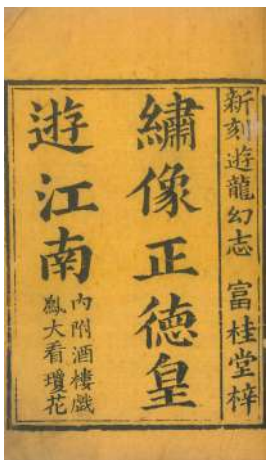 新刻遊龍幻志 富桂堂梓
繡像正德皇
遊江南
內附酒樓戲
鳳大看瓊花